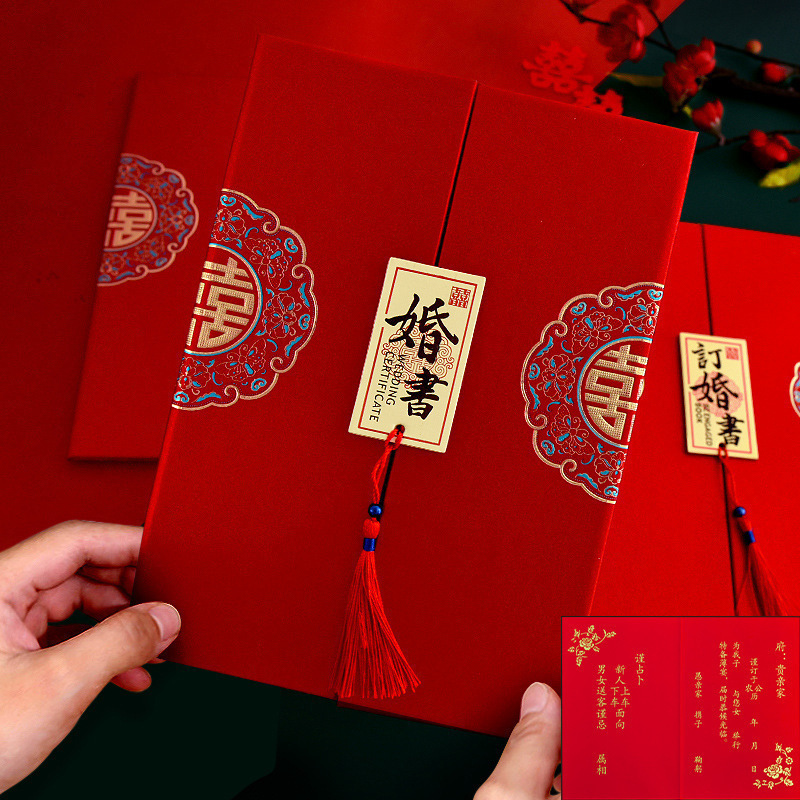 囍
喜
喜
喜
婚書
WEDDING
CERTIFICATE
訂婚書
BE ENGAGED
BOOK
府：贵亲家
谨订于公农历 年 月 日
为我子 与您女 举行
特备薄宴，届时恭候光临。
愚亲家 携子 鞠躬
谨占卜
新人上车下车面向
男女送客谨忌 属相